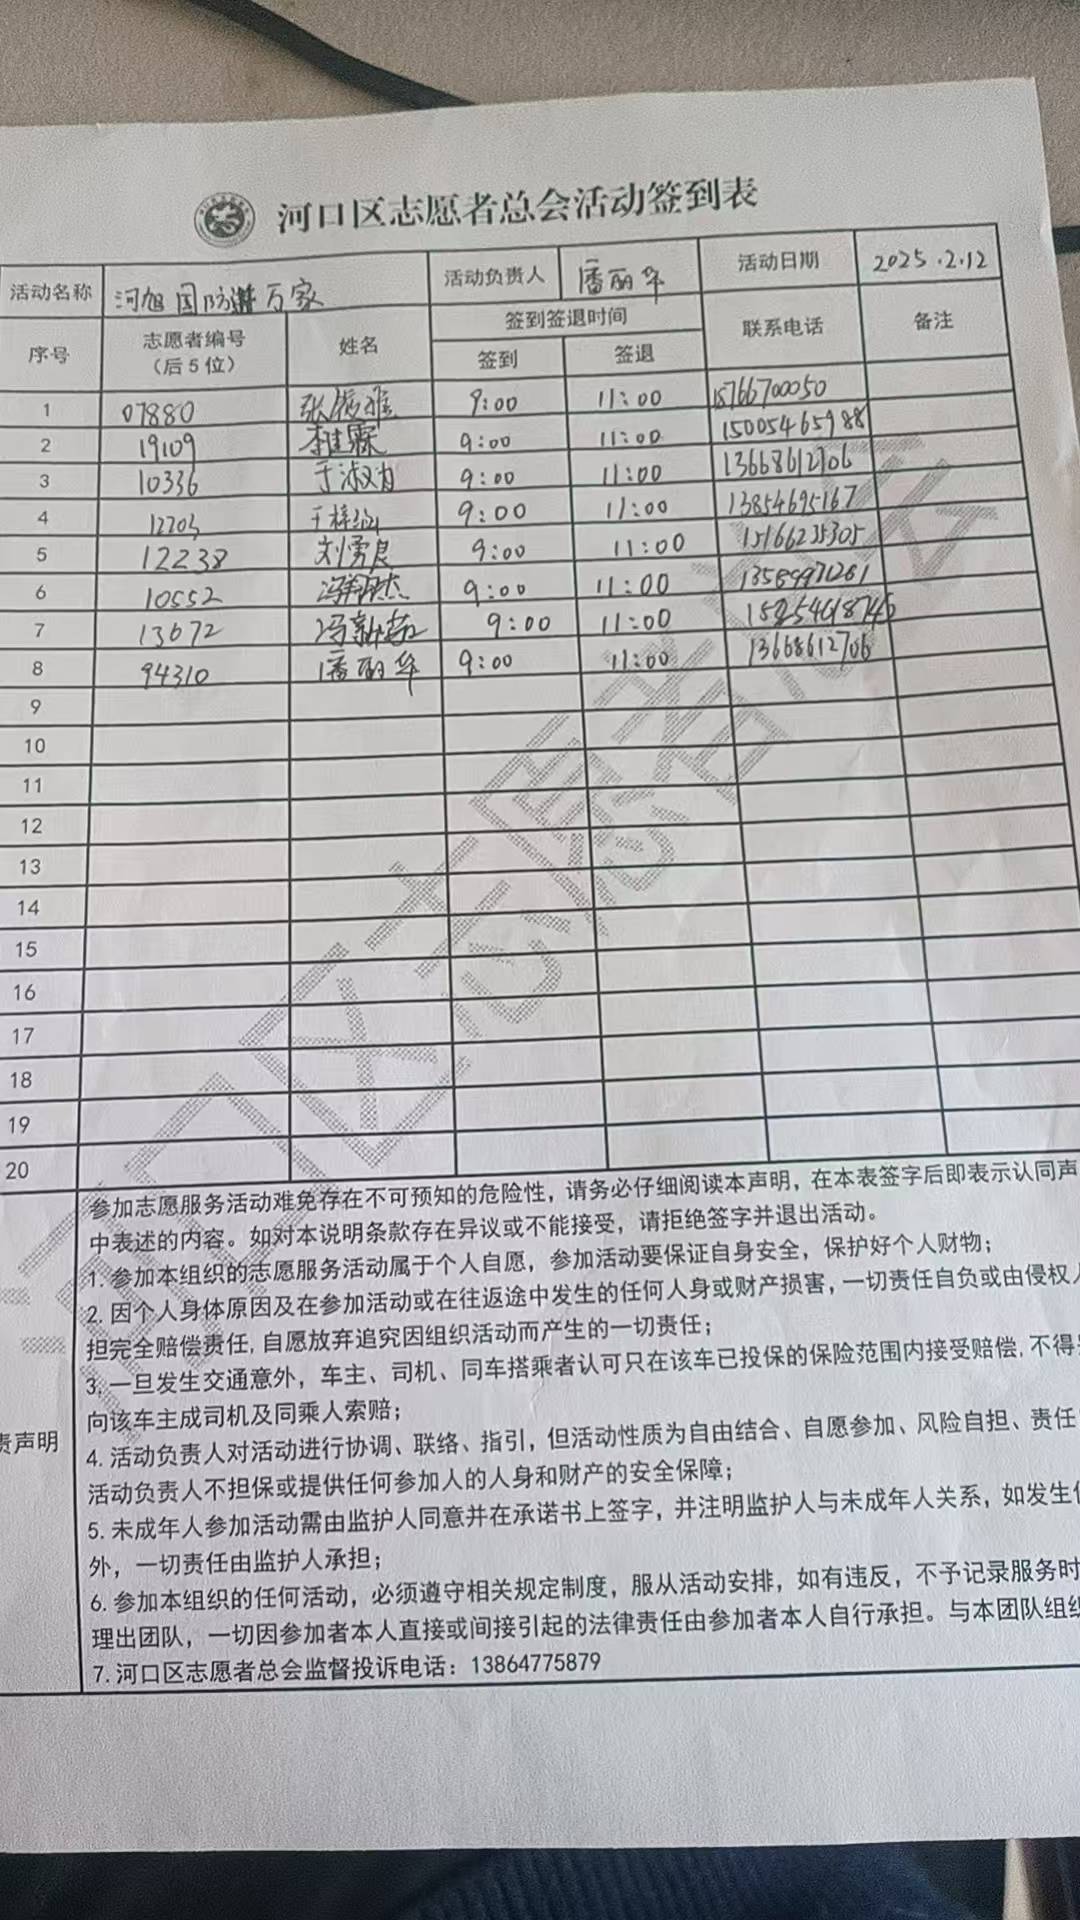 河口区志愿者总会活动签到表
活动名称 河旭国防进万家 活动负责人 潘丽华 活动日期 2025.2.12
序号 志愿者编号（后5位） 姓名 签到签退时间 联系电话 备注
签到 签退
1 07880 9:00 11:00 15766700050
2 19109 9:00 11:00 15005465988
3 10336 于淑为 9:00 11:00 13668612706
4 12703 9:00 11:00 13854695167
5 12238 刘勇良 9:00 11:00 15166235305
6 10552 9:00 11:00 13589971261
7 13672 9:00 11:00
8 94310 潘丽华 9:00 11:00 13668612706
9
10
11
12
13
14
15
16
17
18
19
20
参加志愿服务活动难免存在不可预知的危险性，请务必仔细阅读本声明，在本表签字后即表示认同声
中表述的内容。如对本说明条款存在异议或不能接受，请拒绝签字并退出活动。
1. 参加本组织的志愿服务活动属于个人自愿，参加活动要保证自身安全，保护好个人财物；
2. 因个人身体原因及在参加活动或在往返途中发生的任何人身或财产损害，一切责任自负或由侵权人
担完全赔偿责任, 自愿放弃追究因组织活动而产生的一切责任；
3, 一旦发生交通意外，车主、司机、同车搭乘者认可只在该车已投保的保险范围内接受赔偿, 不得
向该车主成司机及同乘人索赔；
责声明
4. 活动负责人对活动进行协调、联络、指引，但活动性质为自由结合、自愿参加、风险自担、责任
活动负责人不担保或提供任何参加人的人身和财产的安全保障；
5. 未成年人参加活动需由监护人同意并在承诺书上签字，并注明监护人与未成年人关系，如发生
外，一切责任由监护人承担；
6. 参加本组织的任何活动，必须遵守相关规定制度，服从活动安排，如有违反，不予记录服务时
理出团队，一切因参加者本人直接或间接引起的法律责任由参加者本人自行承担。与本团队组织
7. 河口区志愿者总会监督投诉电话：13864775879
河口区志愿者总会